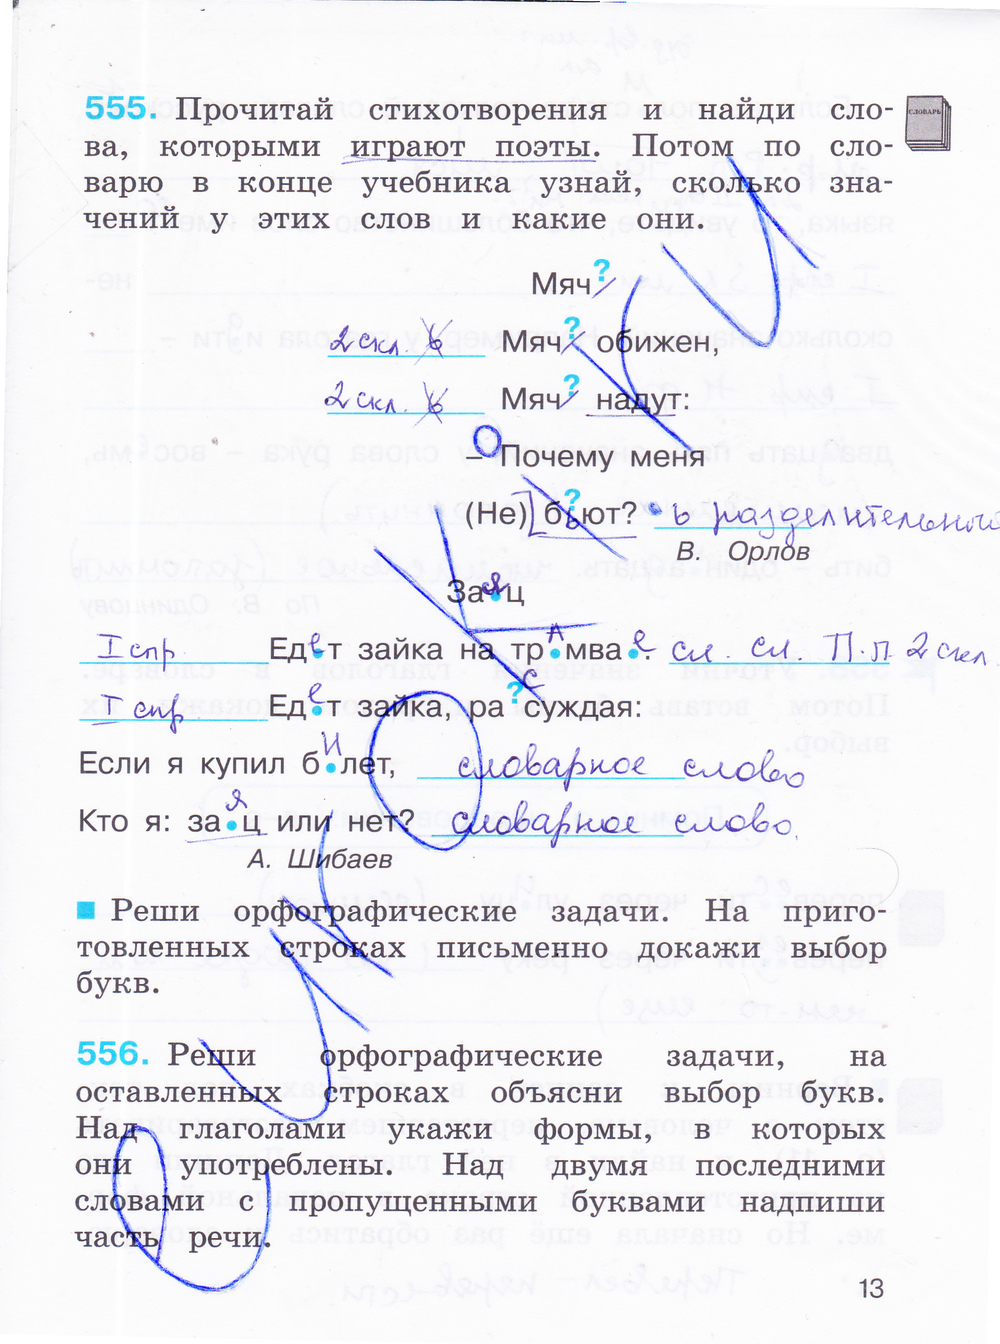 555. Прочитай стихотворения и найди сло-
ва, которыми играют поэты. Потом по сло-
варю в конце учебника узнай, сколько зна-
чений у этих слов и какие они.
СЛОВАРЬ
Мяч?
2 скл. ь Мяч? обижен,
2 скл. ь Мяч? надут:
– Почему меня
(Не) б?ют? ь разделительного
В. Орлов
Заяц
I спр. Едет зайка на трамвае. сл. сл. П.п. 2 скл.
I спр. Едет зайка, рассуждая:
Если я купил билет, словарное слово
Кто я: заяц или нет? словарное слово.
А. Шибаев
Реши орфографические задачи. На приго-
товленных строках письменно докажи выбор
букв.
556. Реши орфографические задачи, на
оставленных строках объясни выбор букв.
Над глаголами укажи формы, в которых
они употреблены. Над двумя последними
словами с пропущенными буквами надпиши
часть речи.
13